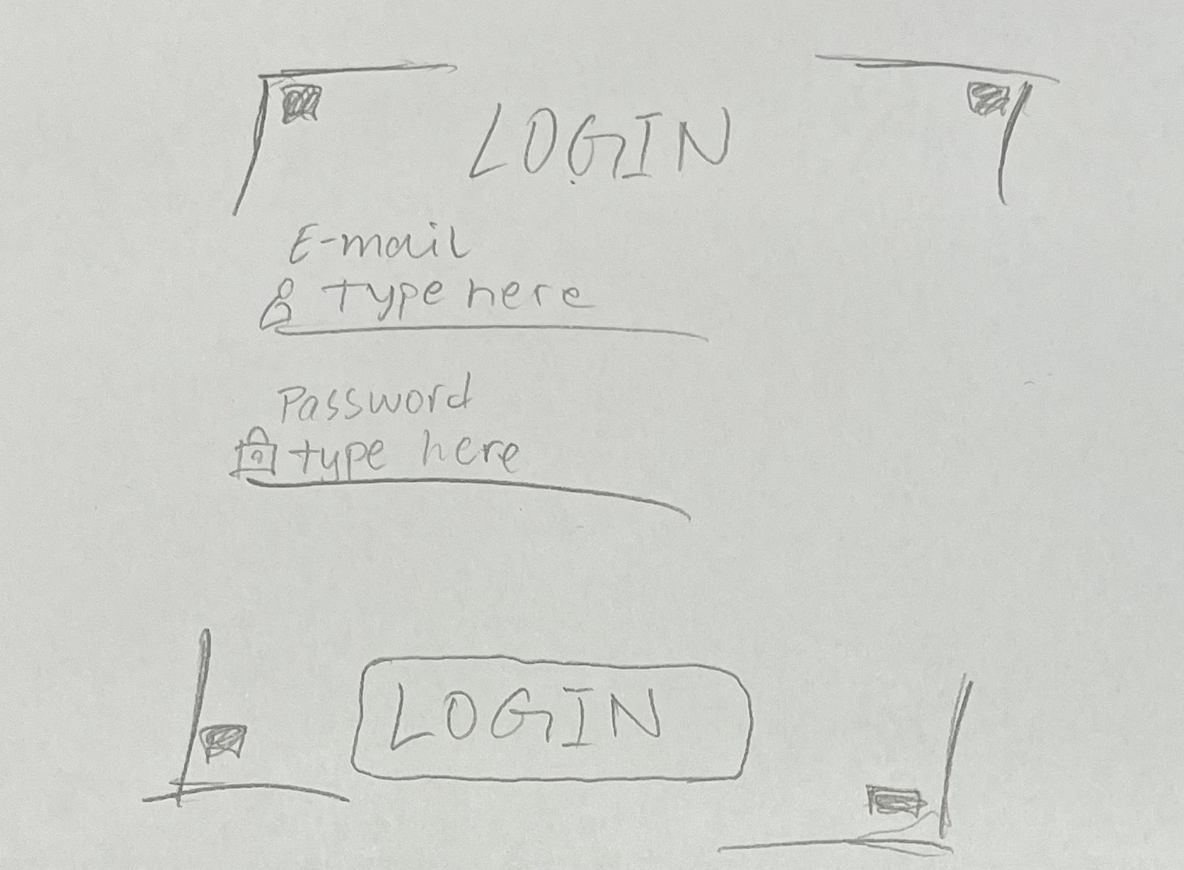 LOGIN
E-mail
type here
Password
type here
LOGIN